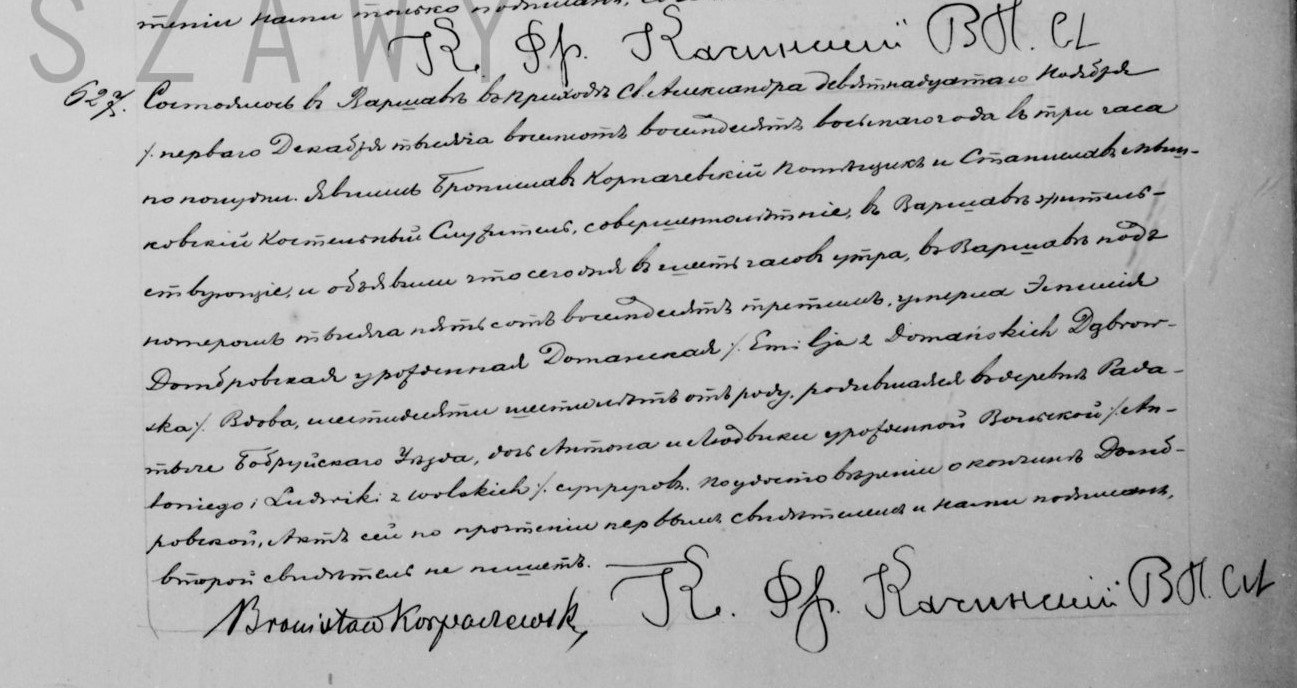 тенiи нами только
SZAWY
К. Фр. Качинскiй ВП. СА
627. Состоялось въ Варшавѣ въ приходѣ Св Александра девятнадцатаго Ноября
/. перваго Декабря тысяча восемьсотъ восемьдесятъ восьмаго года въ три часа
по полудни. Явились Бронислав Корпачевскiй Помѣщикъ и Станиславъ
ковскiй Костельный Служитель, совершеннолѣтнiе, въ Варшавѣ житель-
ствующiе, и объявили что сегодня въ шесть часовъ утра, въ Варшавѣ подъ
номеромъ тысяча пятьсотъ восемьдесятъ третьимъ, умерла Эмилiя
Домбровская урожденная Доманская /. Emilja z Domańskich Dąbrow-
ska /. Вдова, шестидесяти шести лѣтъ отъ роду, родившаяся въ деревнѣ Рата-
Бобруйскаго Уѣзда, дочь Антона и Людвики урожденной Вольской /. An-
toniego i Ludwiki z Wolskich /. супруговъ. По удостовѣренiи о кончинѣ Домб-
ровской, Актъ сей по прочтенiи первымъ свидѣтелемъ и нами подписанъ,
второй свидѣтель не пишетъ.
Bronisław Korpaczewski
К. Фр. Качинскiй ВП. СА